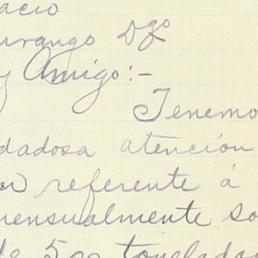 acio
urango Dgo
y Amigo:-
Tenemo
dadosa atención
referente á
mensualmente so
de 500 tonelada